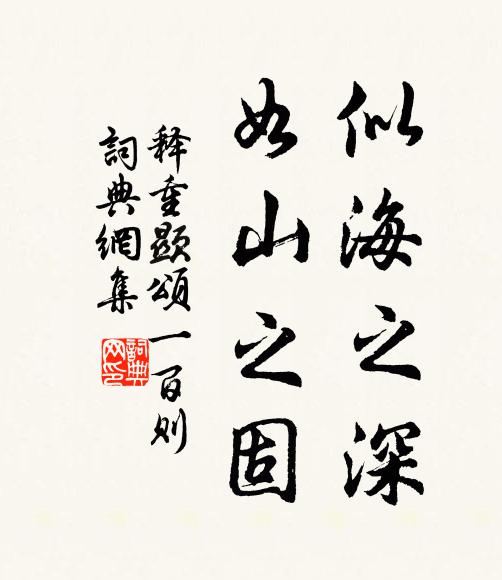 似海之深
如山之固
释重顯頌一百则
詞典網集
詞典網印